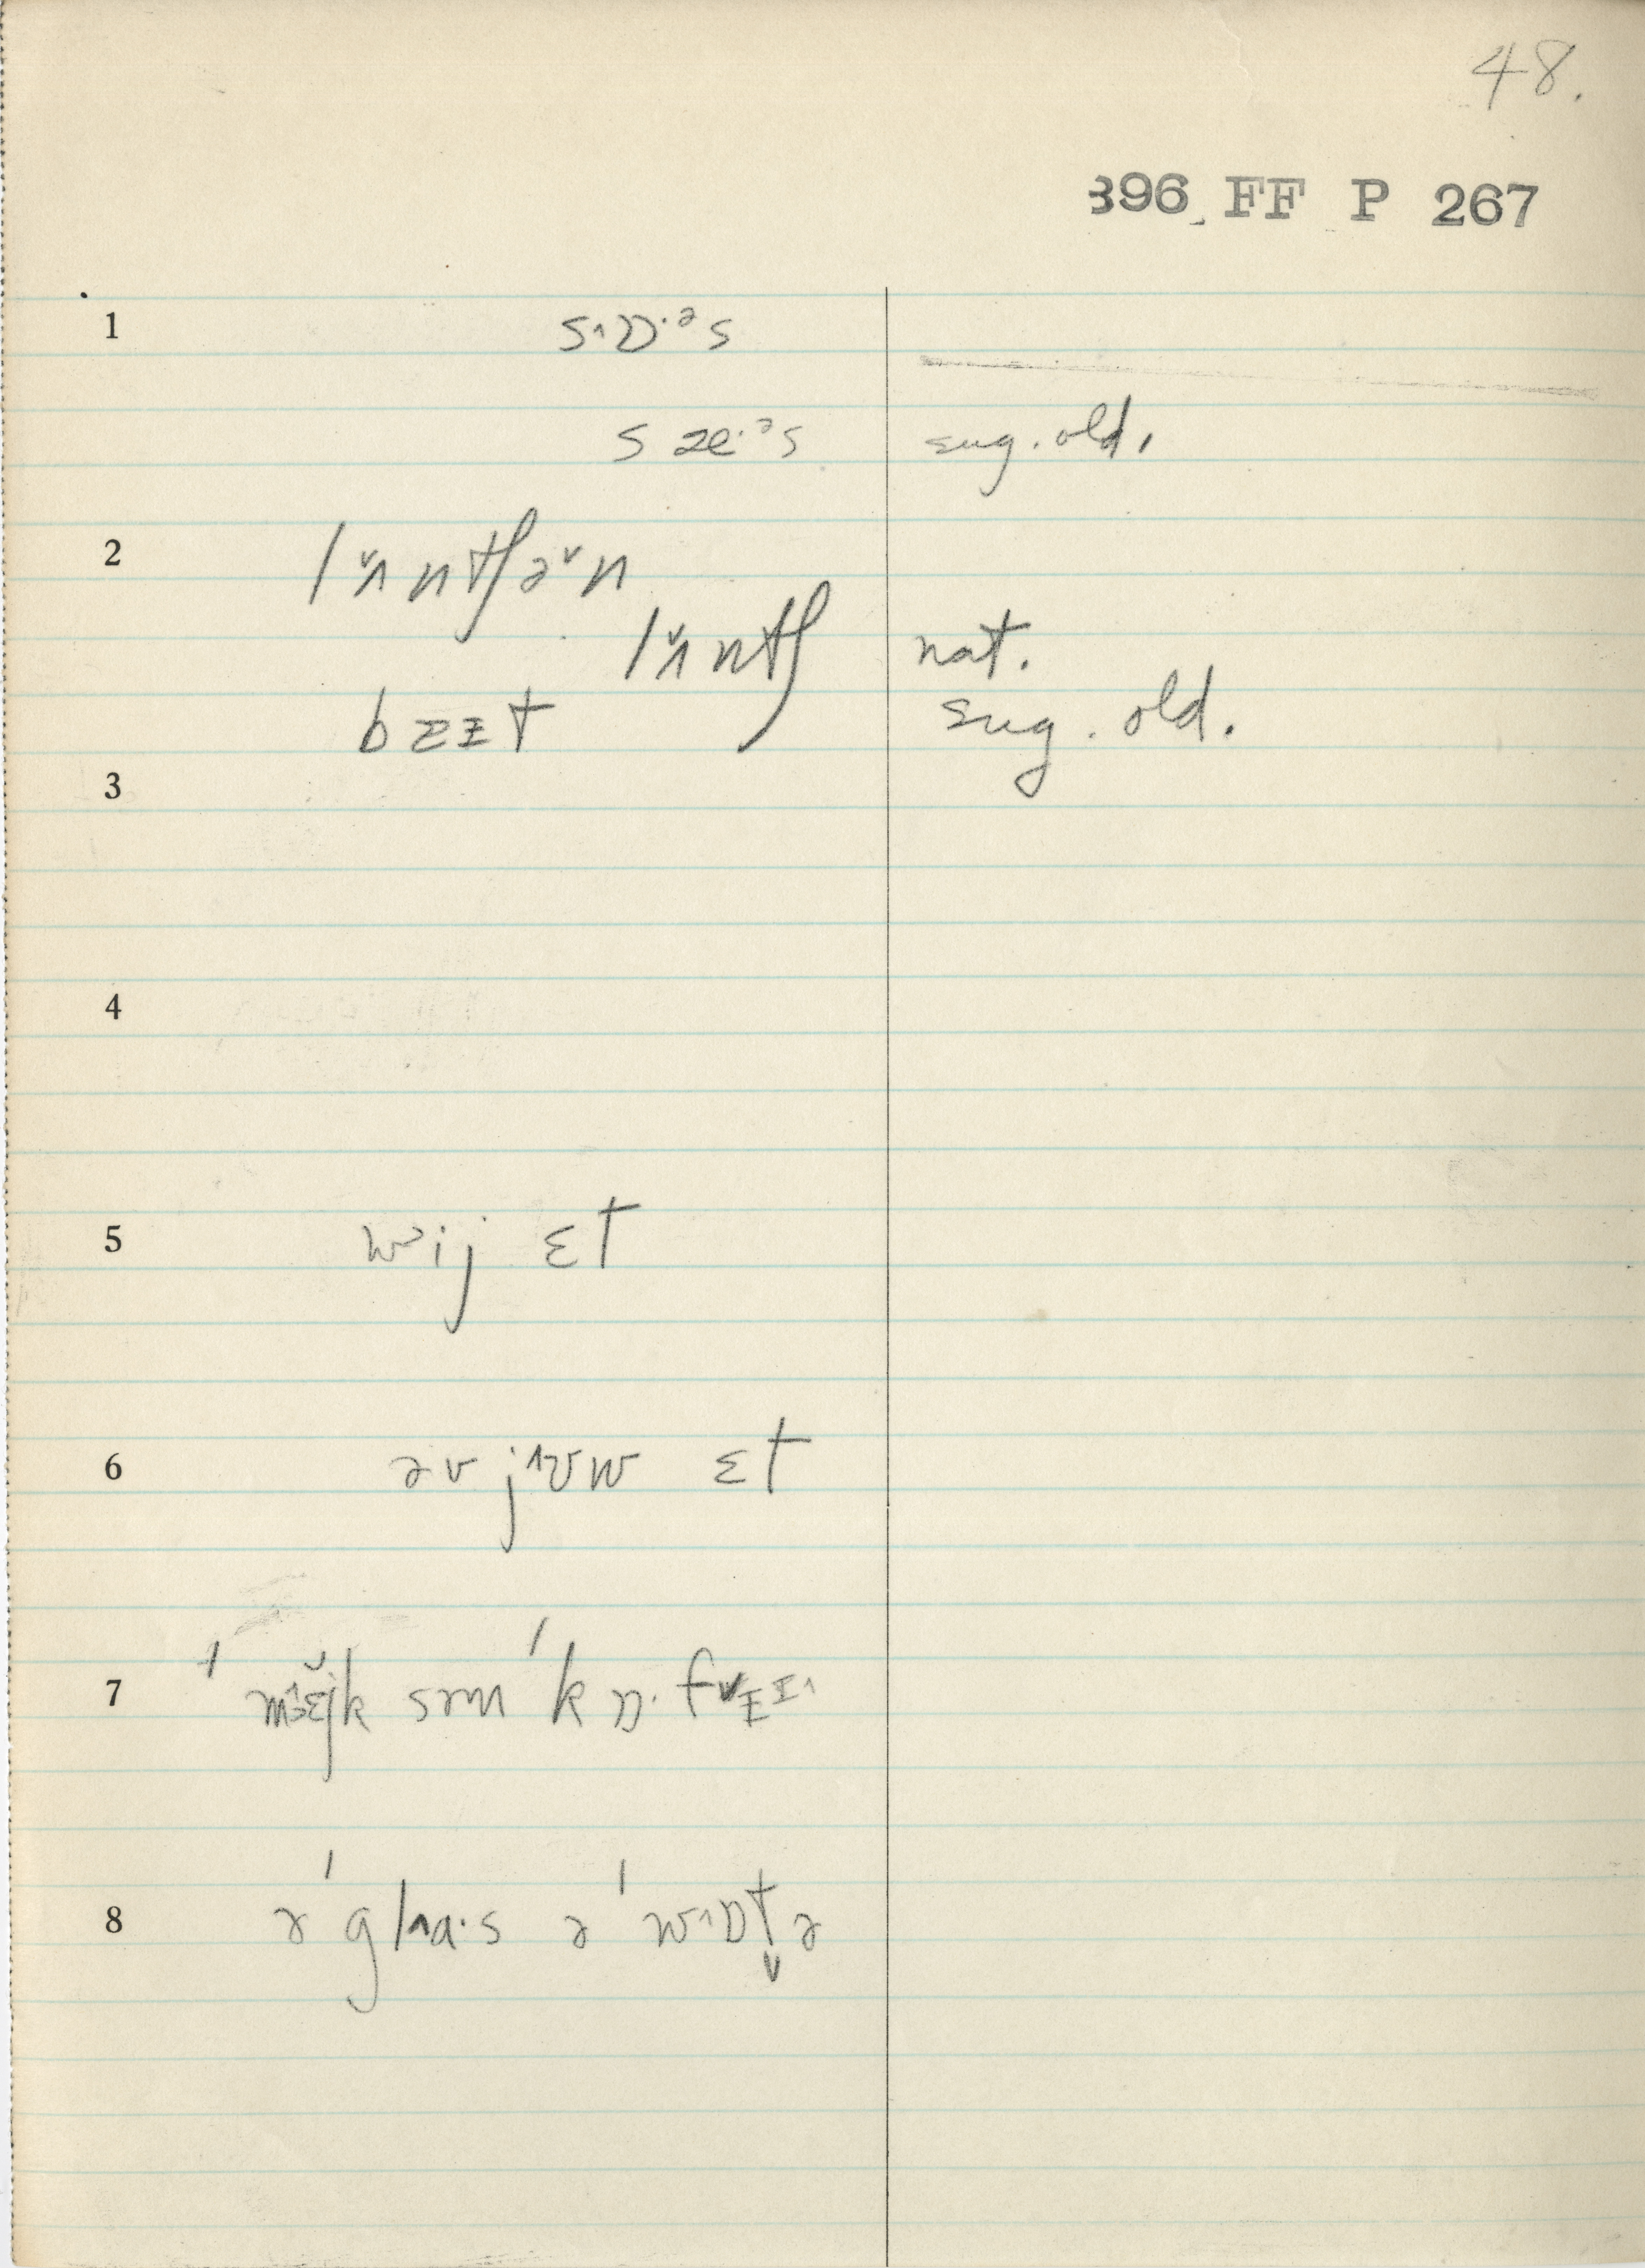 48.
396 FF P 267
1 s˄ɒ·ᵊs
s æ·ᵊs sug. old.
2 l ʌ̆ntʃə̆n
l ʌ̆ntʃ nat.
bɪɪt sug. old.
3
4
5 wᵊij ɛt
6 əv j˄ʊw ɛt
7 ˈmɛ̆jk səm ˈkɒ·fɪɪ
8 ə ˈgl˄a·s ə ˈw˄ɒt̬ə